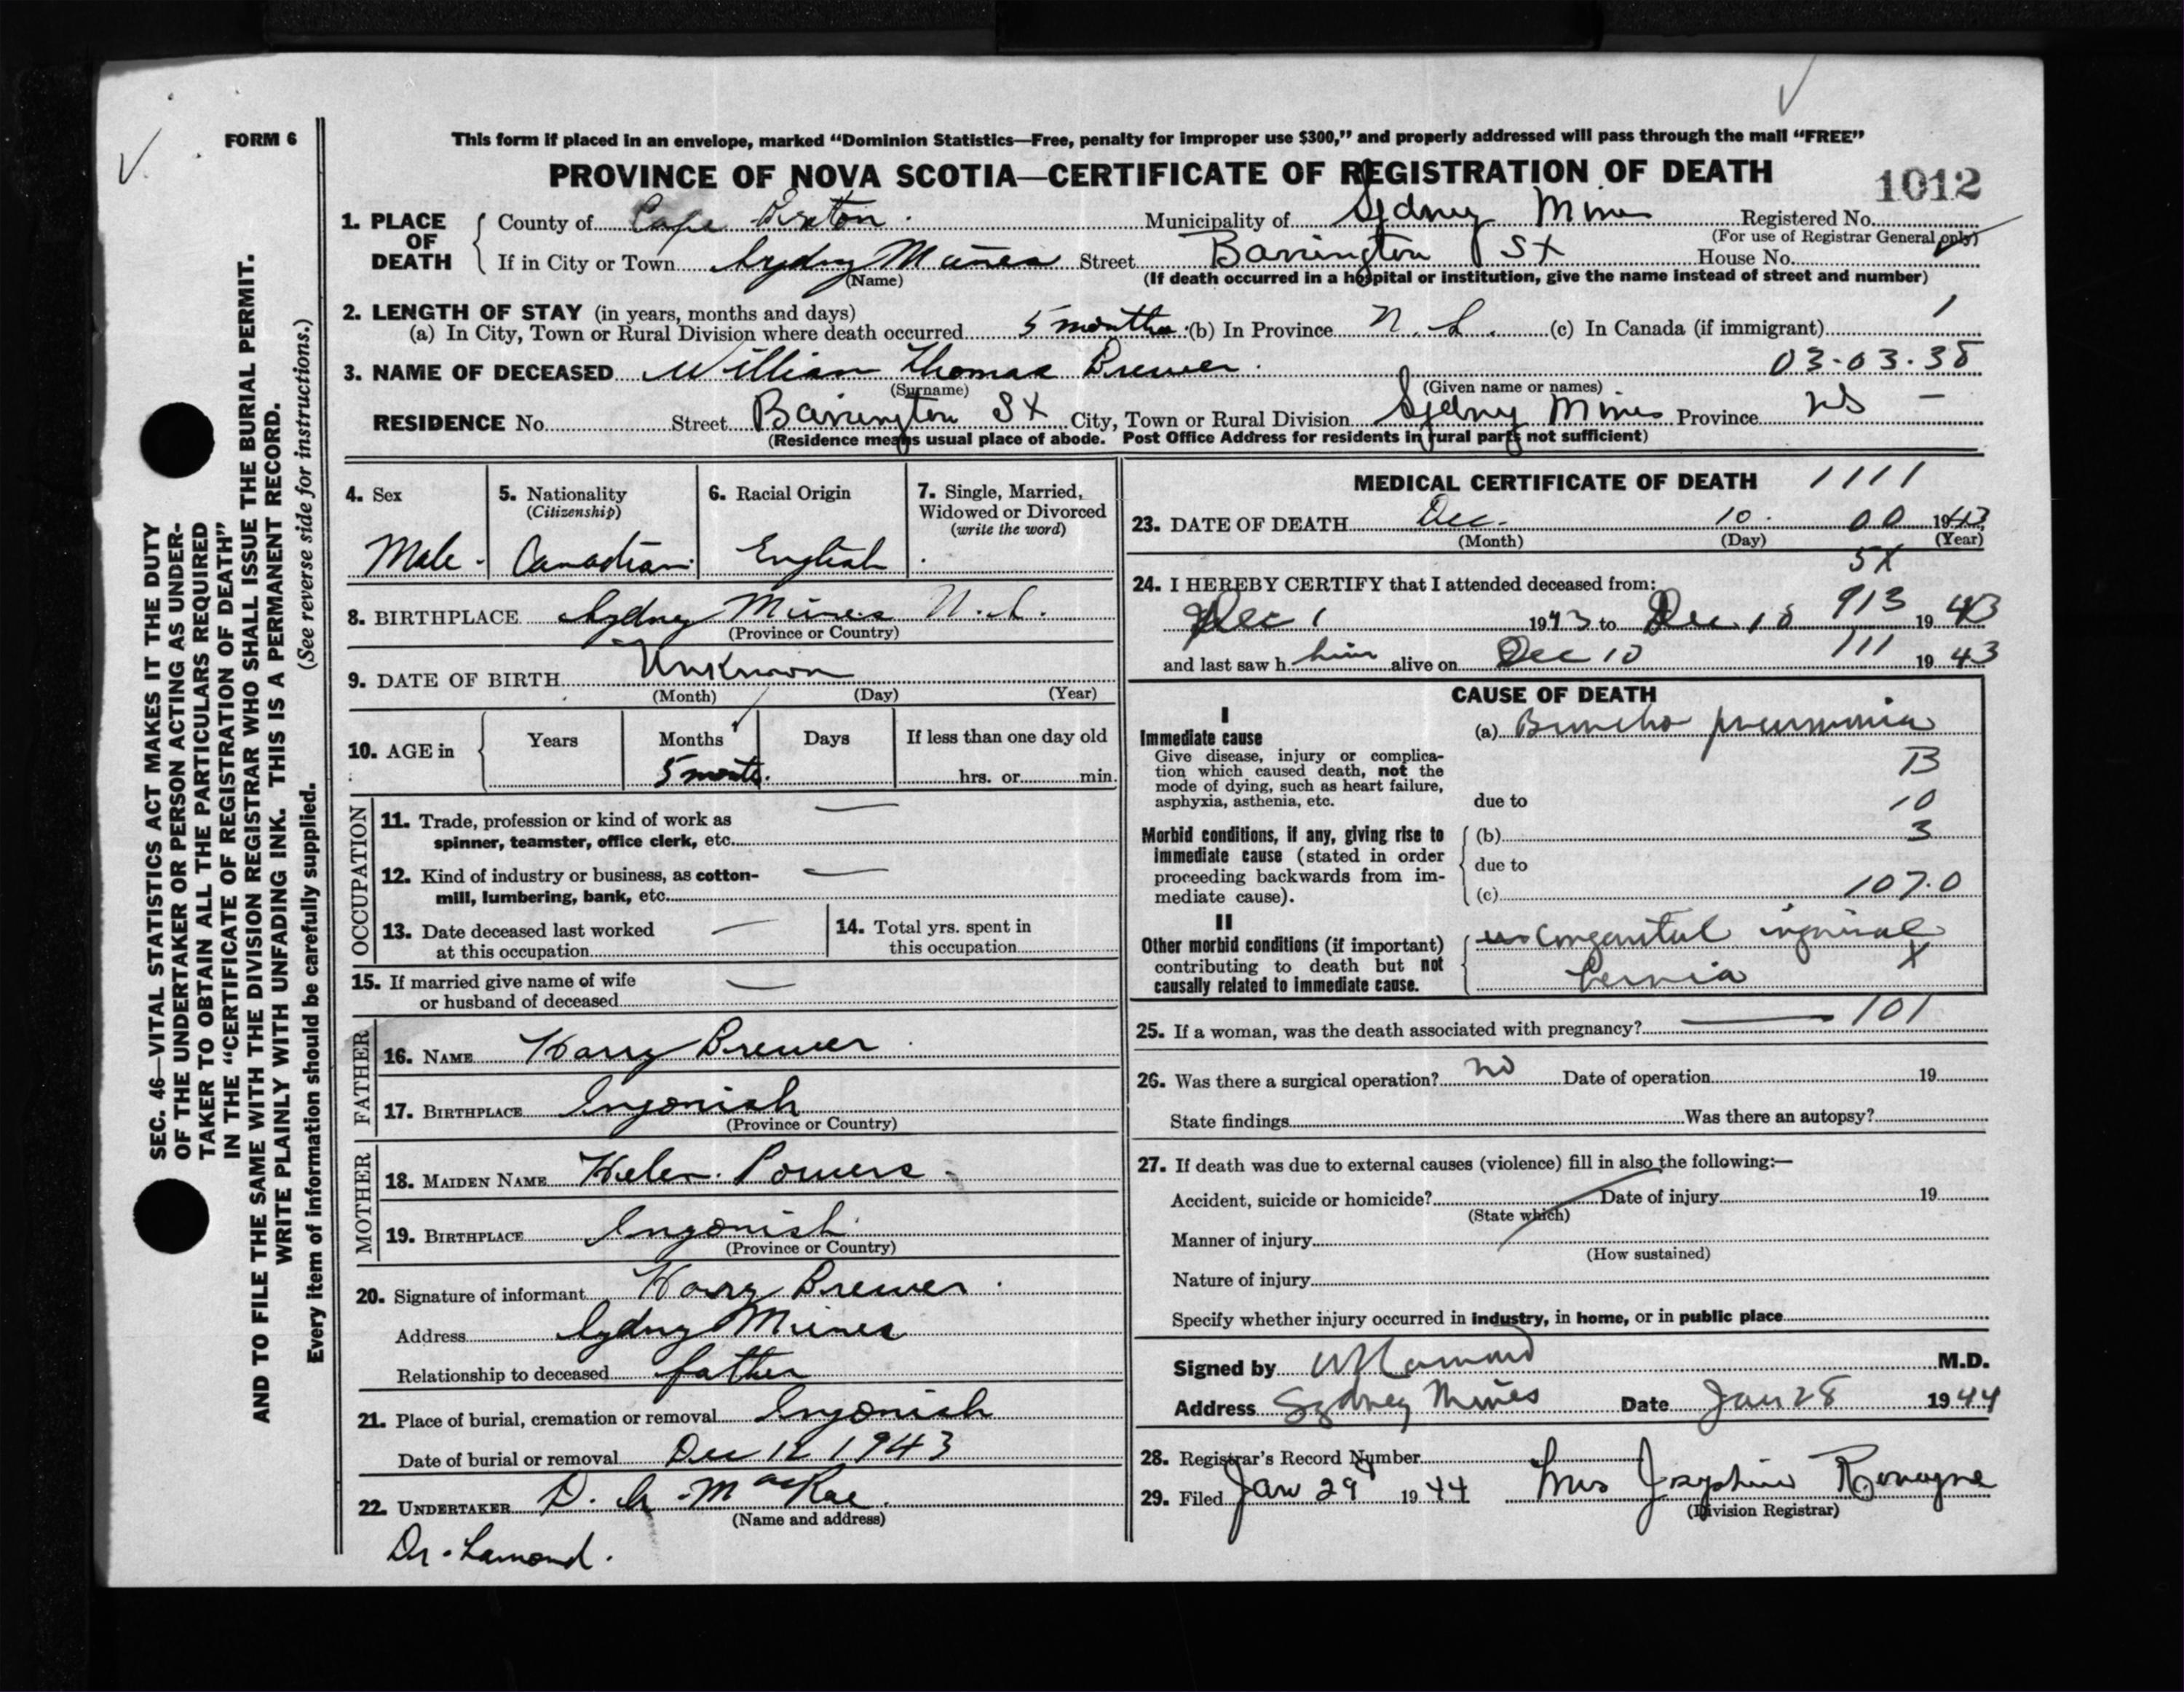 FORM 6
This form if placed in an envelope, marked “Dominion Statistics—Free, penalty for improper use $300,” and properly addressed will pass through the mail “FREE”
PROVINCE OF NOVA SCOTIA—CERTIFICATE OF REGISTRATION OF DEATH
1012
1. PLACE OF DEATH
County of Cape Breton. Municipality of Sydney Mines Registered No.
(For use of Registrar General only)
If in City or Town Sydney Mines Street Barrington St House No.
(Name) (If death occurred in a hospital or institution, give the name instead of street and number)
2. LENGTH OF STAY (in years, months and days)
(a) In City, Town or Rural Division where death occurred 5 months (b) In Province N. S. (c) In Canada (if immigrant) 1
3. NAME OF DECEASED William Thomas Brewer. 03-03-38
(Surname) (Given name or names)
RESIDENCE No. Street Barrington St City, Town or Rural Division Sydney Mines Province NS —
(Residence means usual place of abode. Post Office Address for residents in rural parts not sufficient)
4. Sex
Male -
5. Nationality
(Citizenship)
Canadian
6. Racial Origin
English
7. Single, Married,
Widowed or Divorced
(write the word)
8. BIRTHPLACE Sydney Mines N.S.
(Province or Country)
9. DATE OF BIRTH Unknown
(Month) (Day) (Year)
10. AGE in Years Months Days If less than one day old
5 months. hrs. or min.
OCCUPATION
11. Trade, profession or kind of work as
spinner, teamster, office clerk, etc. —
12. Kind of industry or business, as cotton-
mill, lumbering, bank, etc. —
13. Date deceased last worked
at this occupation —
14. Total yrs. spent in
this occupation
15. If married give name of wife
or husband of deceased —
FATHER
16. NAME Harry Brewer
17. BIRTHPLACE Ingonish
(Province or Country)
MOTHER
18. MAIDEN NAME Helen Powers
19. BIRTHPLACE Ingonish
(Province or Country)
20. Signature of informant Harry Brewer
Address Sydney Mines
Relationship to deceased father
21. Place of burial, cremation or removal Ingonish
Date of burial or removal Dec 12 1943
22. UNDERTAKER D. MacRae.
(Name and address)
Dr. Lamond.
MEDICAL CERTIFICATE OF DEATH 1111
23. DATE OF DEATH Dec. 10. 00 1943
(Month) (Day) (Year)
5X
24. I HEREBY CERTIFY that I attended deceased from:
Dec 1 1943 to Dec 10 913 1943
and last saw h him alive on Dec 10 111 1943
CAUSE OF DEATH
I
Immediate cause
Give disease, injury or complica-
tion which caused death, not the
mode of dying, such as heart failure,
asphyxia, asthenia, etc.
(a) Broncho pneumonia
B
due to 10
Morbid conditions, if any, giving rise to
immediate cause (stated in order
proceeding backwards from im-
mediate cause).
(b) 3
due to
(c) 107.0
II
Other morbid conditions (if important)
contributing to death but not
causally related to immediate cause.
congenital inguinal
hernia X
25. If a woman, was the death associated with pregnancy? — 101
26. Was there a surgical operation? no Date of operation 19
State findings Was there an autopsy?
27. If death was due to external causes (violence) fill in also the following:—
Accident, suicide or homicide? Date of injury 19
(State which)
Manner of injury
(How sustained)
Nature of injury
Specify whether injury occurred in industry, in home, or in public place
Signed by Lamond M.D.
Address Sydney Mines Date Jan 28 1944
28. Registrar's Record Number
29. Filed Jan 29 1944 Mrs Josephine Ronayne
(Division Registrar)
SEC. 46—VITAL STATISTICS ACT MAKES IT THE DUTY
OF THE UNDERTAKER OR PERSON ACTING AS UNDER-
TAKER TO OBTAIN ALL THE PARTICULARS REQUIRED
IN THE “CERTIFICATE OF REGISTRATION OF DEATH”
AND TO FILE THE SAME WITH THE DIVISION REGISTRAR WHO SHALL ISSUE THE BURIAL PERMIT.
WRITE PLAINLY WITH UNFADING INK. THIS IS A PERMANENT RECORD.
Every item of information should be carefully supplied. (See reverse side for instructions.)